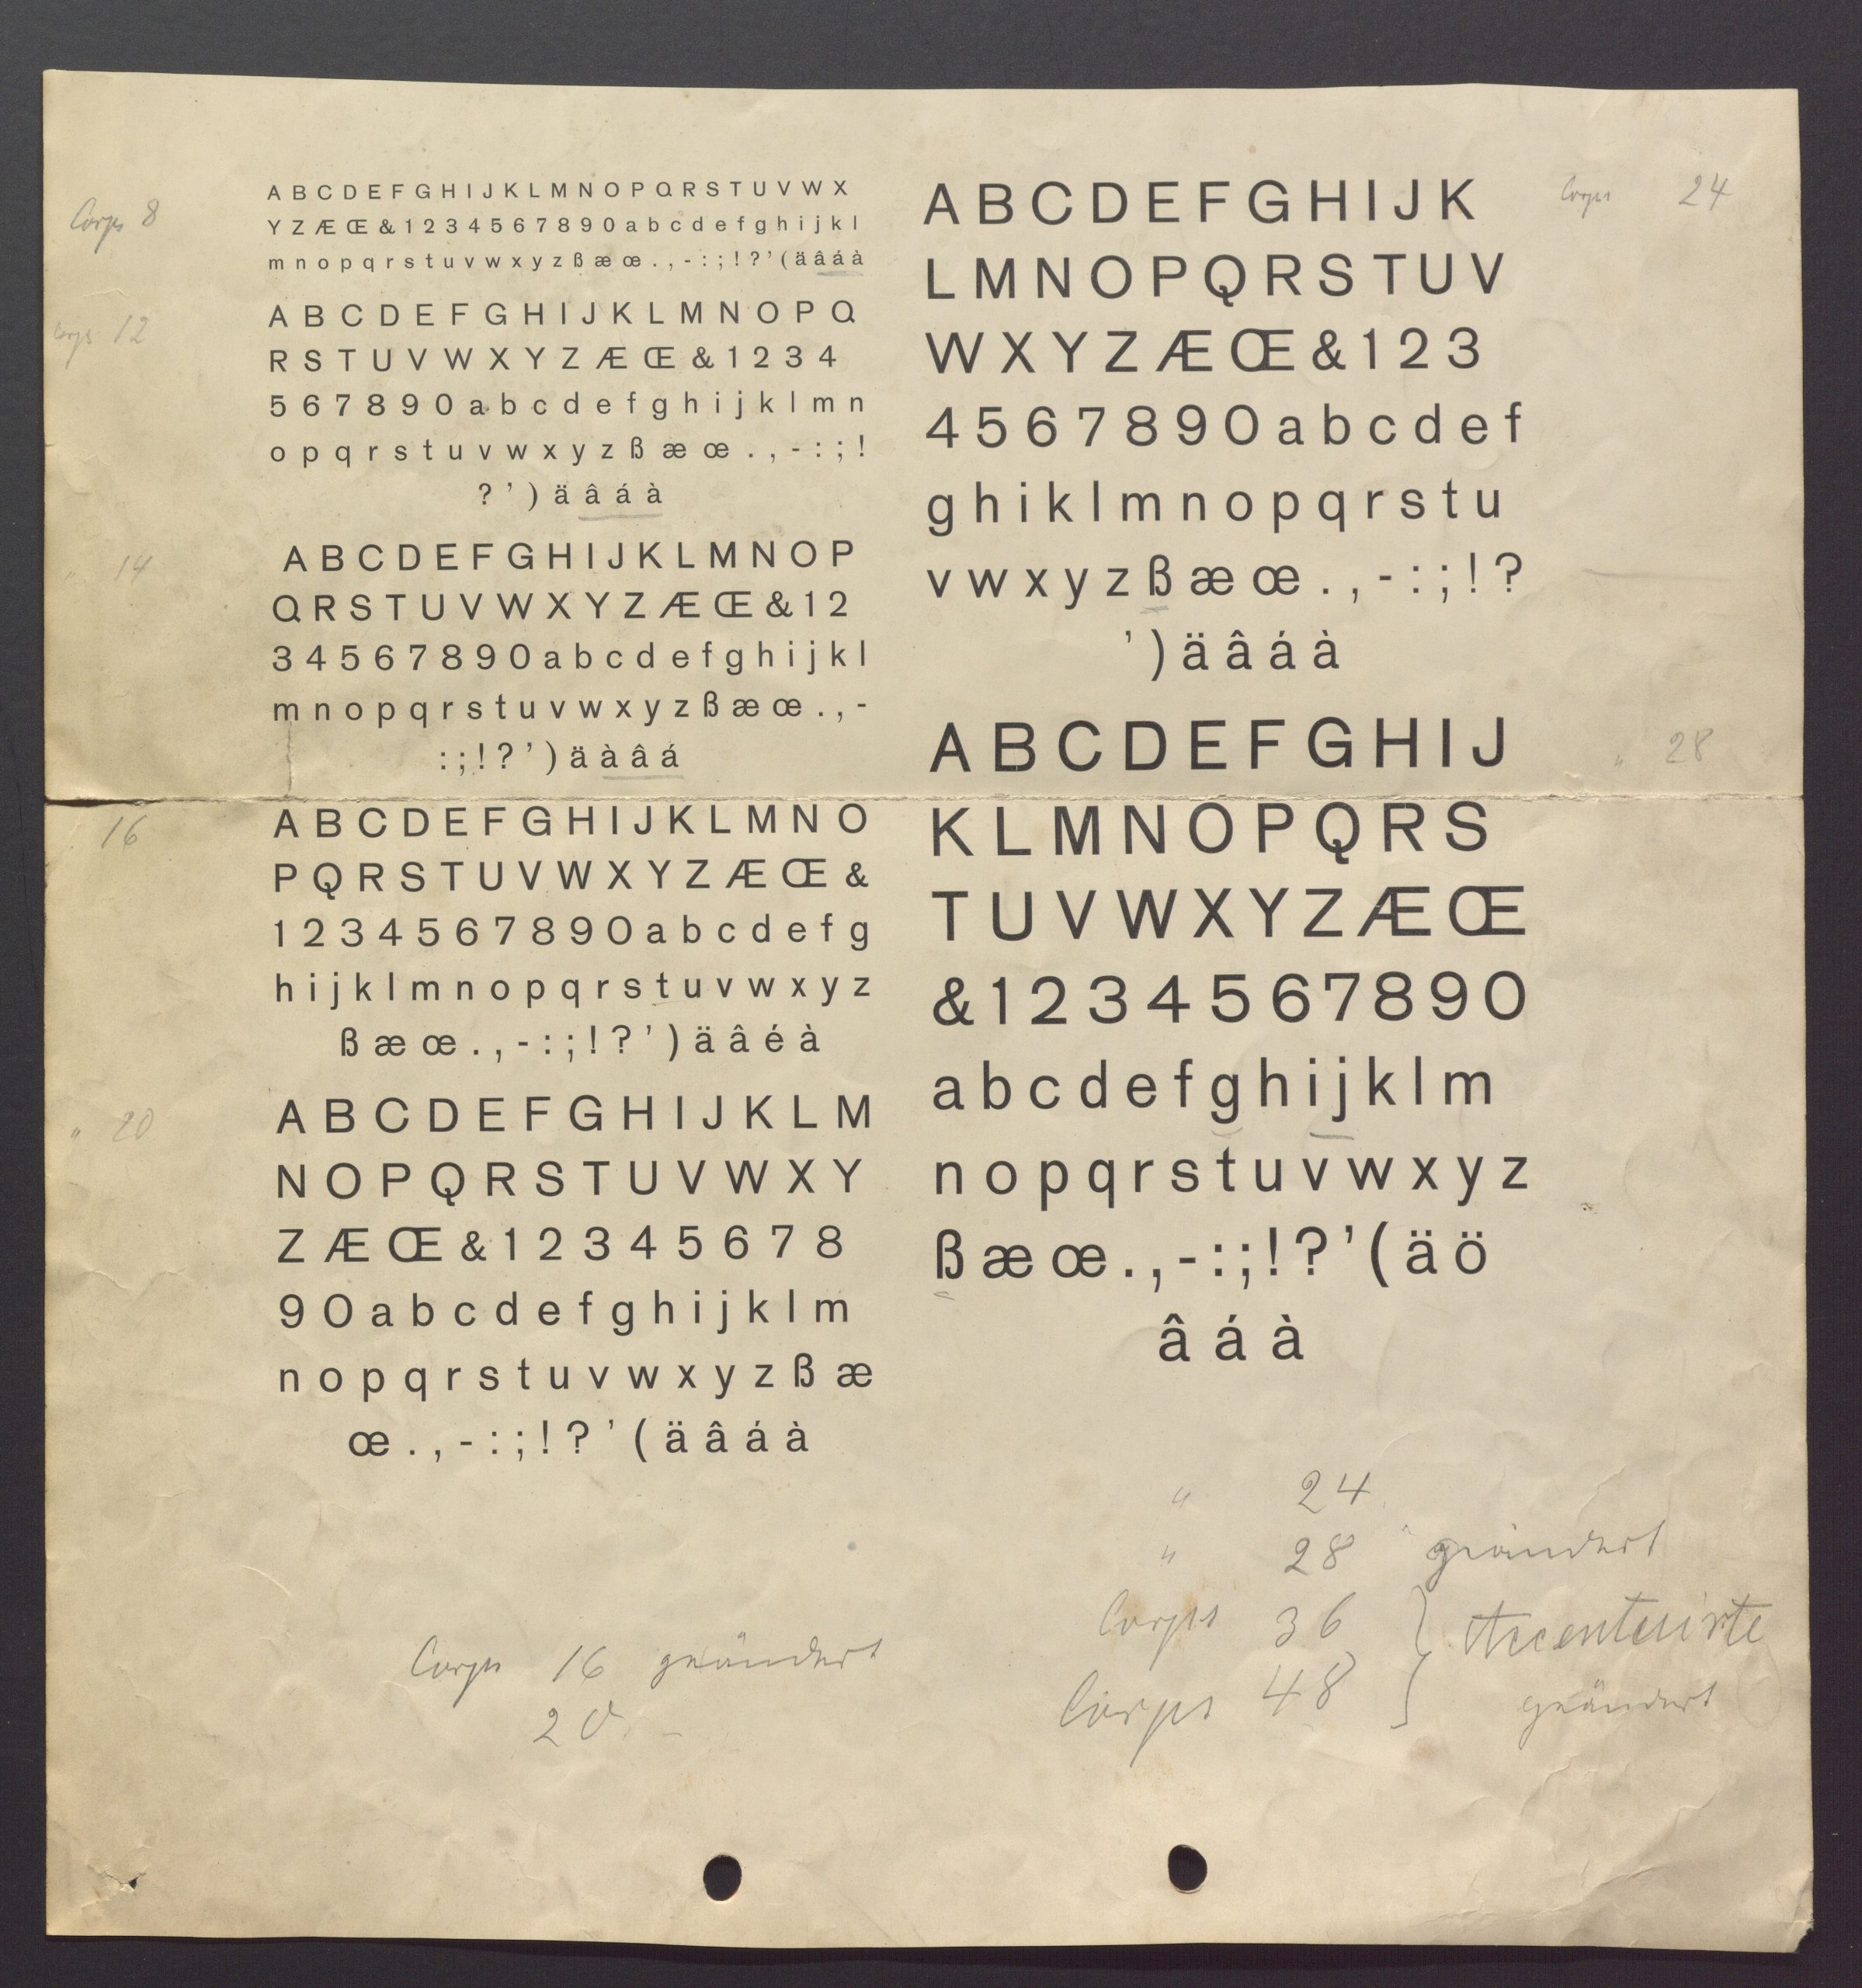 Corps 8
A B C D E F G H I J K L M N O P Q R S T U V W X
Y Z Æ Œ & 1 2 3 4 5 6 7 8 9 0 a b c d e f g h i j k l
m n o p q r s t u v w x y z ß æ œ . , - : ; ! ? ’ ( ä â á à
Corps 12
A B C D E F G H I J K L M N O P Q
R S T U V W X Y Z Æ Œ & 1 2 3 4
5 6 7 8 9 0 a b c d e f g h i j k l m n
o p q r s t u v w x y z ß æ œ . , - : ; !
? ’ ) ä â á à
" 14
A B C D E F G H I J K L M N O P
Q R S T U V W X Y Z Æ Œ & 1 2
3 4 5 6 7 8 9 0 a b c d e f g h i j k l
m n o p q r s t u v w x y z ß æ œ . , -
: ; ! ? ’ ) ä à â á
16
A B C D E F G H I J K L M N O
P Q R S T U V W X Y Z Æ Œ &
1 2 3 4 5 6 7 8 9 0 a b c d e f g
h i j k l m n o p q r s t u v w x y z
ß æ œ . , - : ; ! ? ’ ) ä â é à
" 20
A B C D E F G H I J K L M
N O P Q R S T U V W X Y
Z Æ Œ & 1 2 3 4 5 6 7 8
9 0 a b c d e f g h i j k l m
n o p q r s t u v w x y z ß æ
œ . , - : ; ! ? ’ ( ä â á à
Corps 16 geändert
20 -
Corps 24
A B C D E F G H I J K
L M N O P Q R S T U V
W X Y Z Æ Œ & 1 2 3
4 5 6 7 8 9 0 a b c d e f
g h i k l m n o p q r s t u
v w x y z ß æ œ . , - : ; ! ?
’ ) ä â á à
" 28
A B C D E F G H I J
K L M N O P Q R S
T U V W X Y Z Æ Œ
& 1 2 3 4 5 6 7 8 9 0
a b c d e f g h i j k l m
n o p q r s t u v w x y z
ß æ œ . , - : ; ! ? ’ ( ä ö
â á à
" 24
" 28 geändert
Corps 36 } Accentuirte
Corps 48 geändert